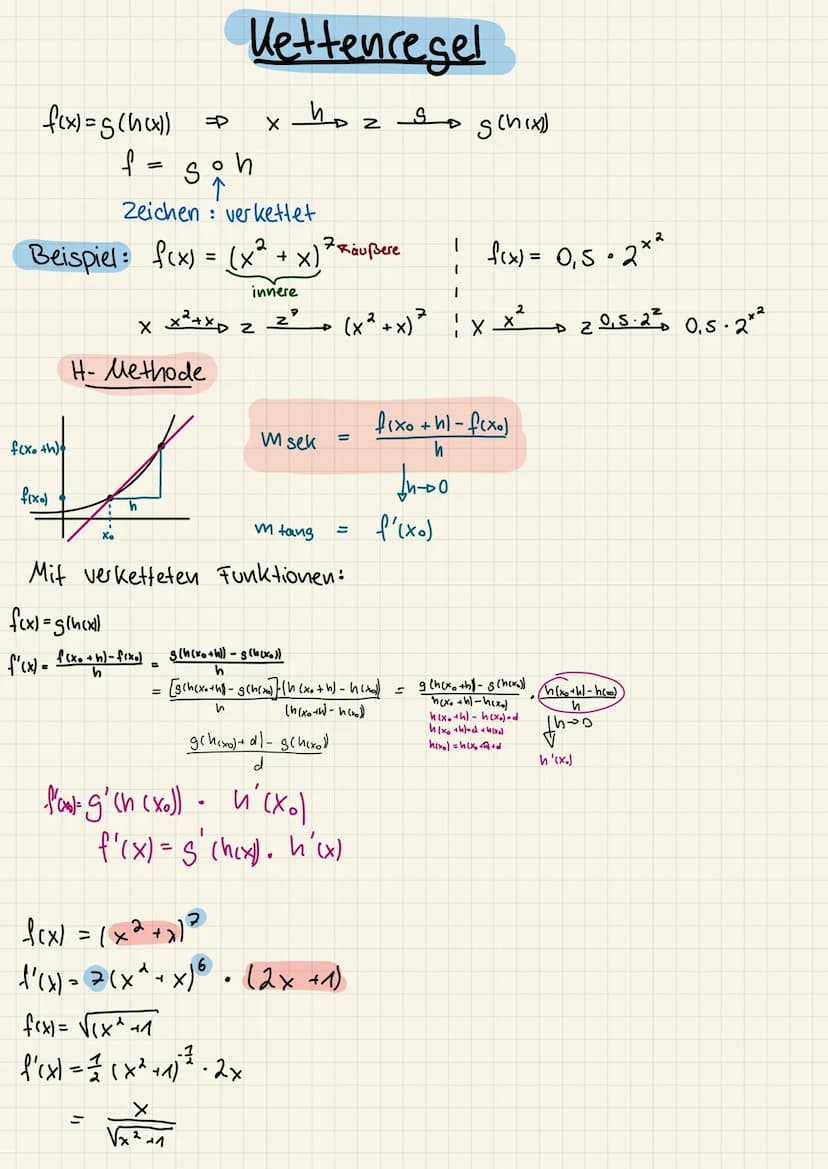 Kettenregel
f(x) = g(h(x)) ⇒ x —h→ z —g→ g(h(x))
f = g ∘ h
↑
Zeichen : verkettet
Beispiel: f(x) = (x² + x)⁷ ↖ äußere
f(x) = 0,5 · 2^x²
innere
x —x²+x→ z —z⁷→ (x² + x)⁷
x —x²→ z —0,5·2^z→ 0,5 · 2^x²
H- Methode
f(x₀ + h)
f(x₀)
h
x₀
m sek = (f(x₀ + h) - f(x₀)) / h
↓ h→0
m tang = f'(x₀)
Mit verketteten Funktionen:
f(x) = g(h(x))
f'(x) = (f(x₀ + h) - f(x₀)) / h = (g(h(x₀+h)) - g(h(x₀))) / h
= ([g(h(x₀+h) - g(h(x₀)] · (h(x₀ + h) - h(x₀)) / (h (h(x₀+h) - h(x₀))) = (g(h(x₀+h) - g(h(x₀)) / (h(x₀ + h) - h(x₀)) · (h(x₀+h) - h(x₀)) / h
h(x₀ + h) - h(x₀) = d
h(x₀ + h) = d + h(x₀)
↓ h→0
h'(x₀)
(g(h(x₀) + d) - g(h(x₀)) / d
f'(x₀) = g'(h(x₀)) · h'(x₀)
f'(x) = g'(h(x)) · h'(x)
f(x) = (x² + x)⁷
f'(x) = 7(x² + x)⁶ · (2x + 1)
f(x) = √(x² + 1
f'(x) = 1/2 (x² + 1)^-1/2 · 2x
= x / √x² + 1